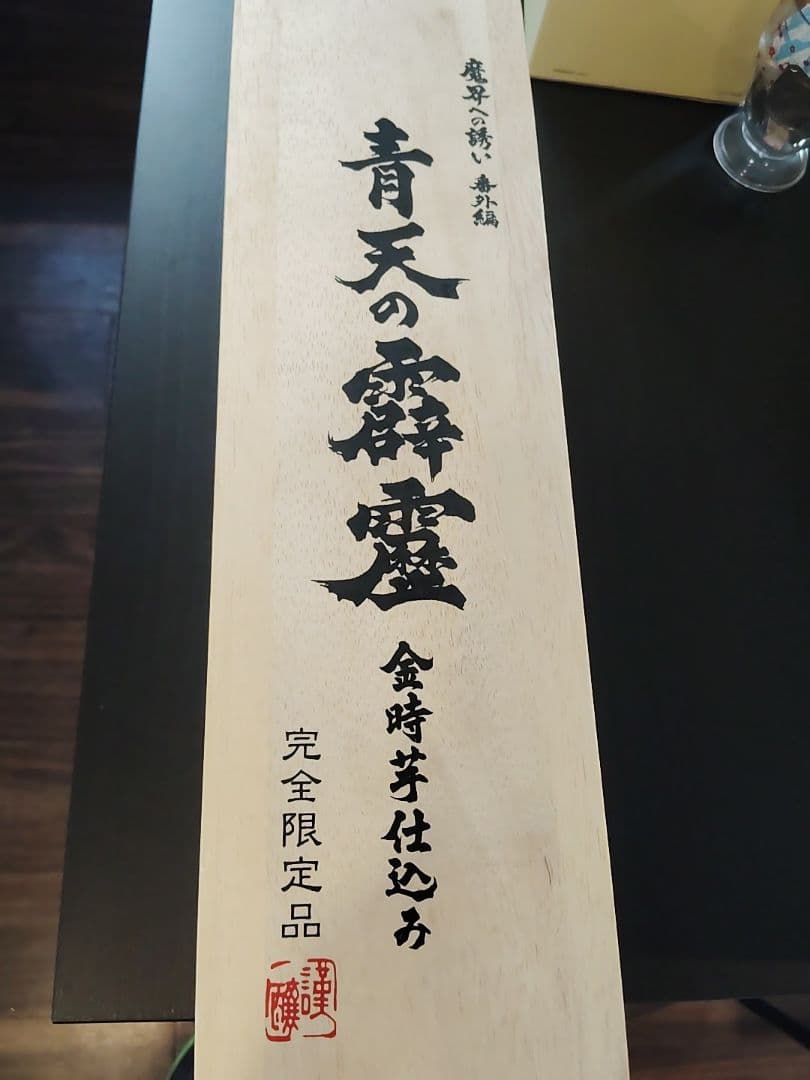 魔界への誘い 番外編
青天の霹靂
金時芋仕込み
完全限定品
謹醸